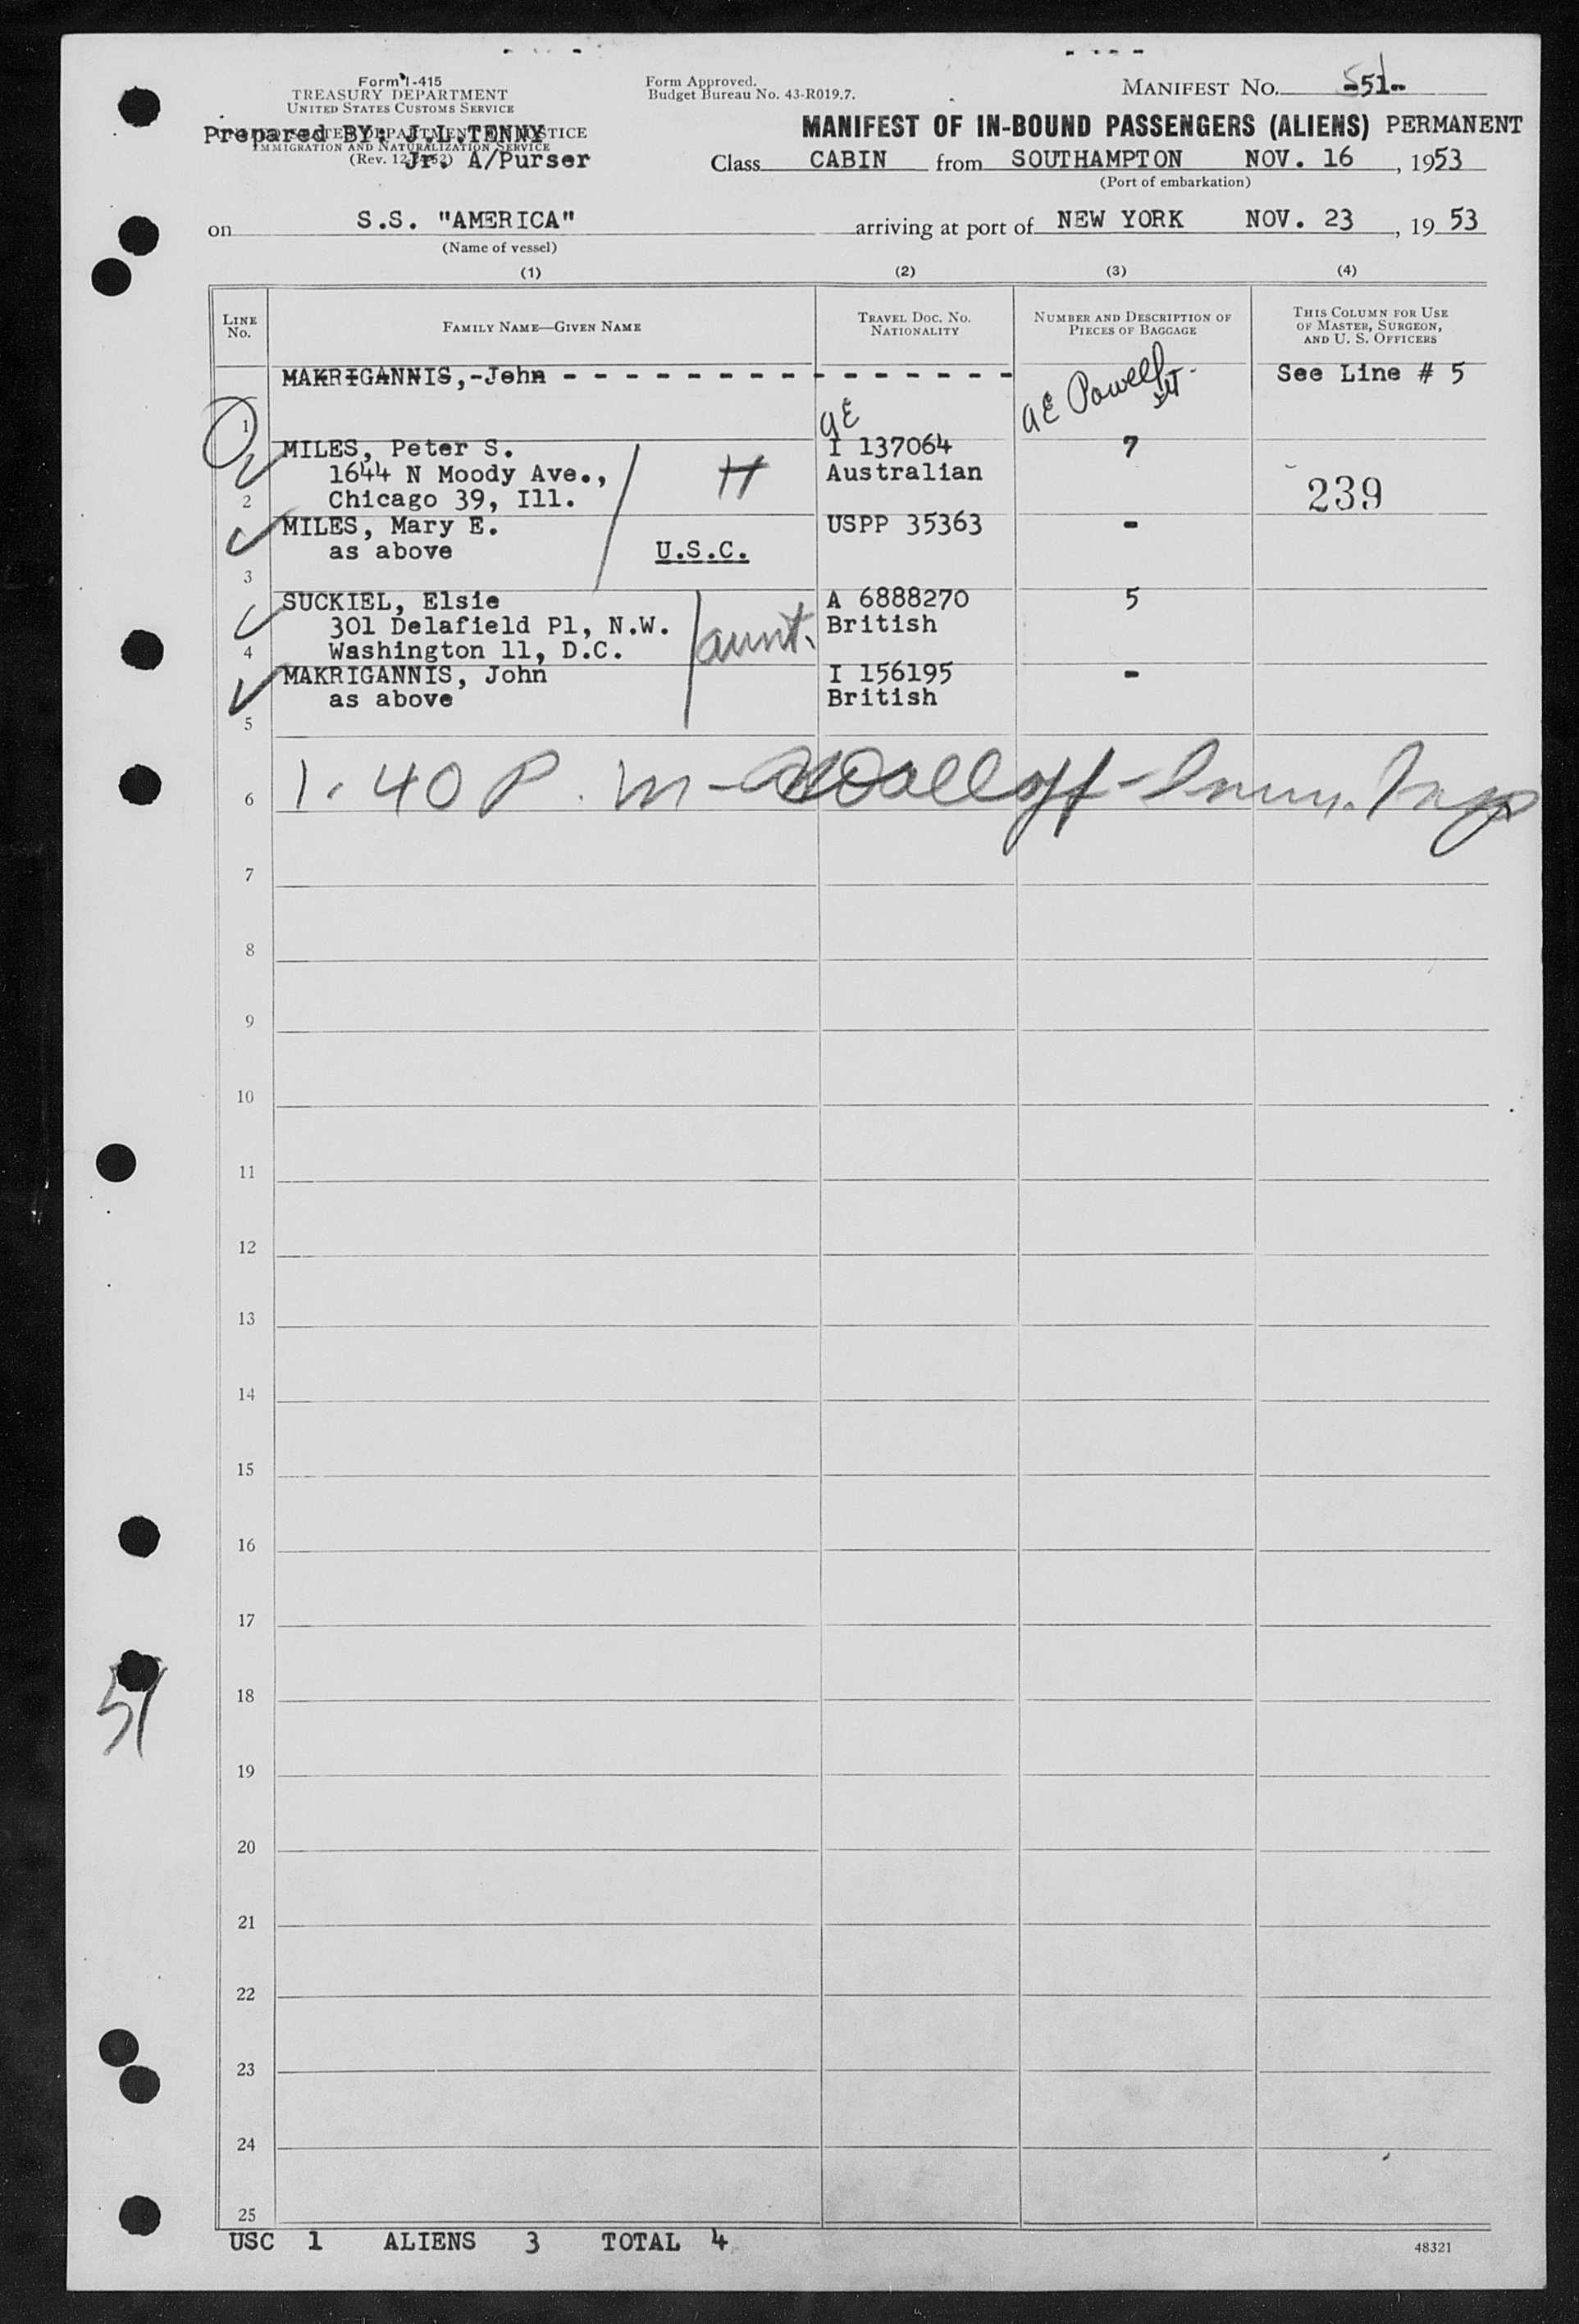 Form I-415
TREASURY DEPARTMENT
UNITED STATES CUSTOMS SERVICE
Prepared BY: J.L.TENNY
IMMIGRATION AND NATURALIZATION SERVICE
Jr. A/Purser
Form Approved.
Budget Bureau No. 43-R019.7.
MANIFEST NO. -51-
MANIFEST OF IN-BOUND PASSENGERS (ALIENS) PERMANENT
Class CABIN from SOUTHAMPTON NOV. 16, 1953
(Port of embarkation)
on S.S. "AMERICA" arriving at port of NEW YORK NOV. 23, 1953
(Name of vessel)
(1) (2) (3) (4)
LINE No. FAMILY NAME—GIVEN NAME TRAVEL DOC. NO. NATIONALITY NUMBER AND DESCRIPTION OF PIECES OF BAGGAGE THIS COLUMN FOR USE OF MASTER, SURGEON, AND U. S. OFFICERS
MAKRIGANNIS,-John - - - - - - - - - - - - - - - See Line # 5
1 AE AE Powell
MILES, Peter S. I 137064 7
1644 N Moody Ave., H Australian
2 Chicago 39, Ill. 239
MILES, Mary E. USPP 35363 -
as above U.S.C.
3
SUCKIEL, Elsie A 6888270 5
301 Delafield Pl, N.W. aunt. British
4 Washington 11, D.C.
MAKRIGANNIS, John I 156195 -
as above British
5
6 1.40 P.m - Imm. Insp
7
8
9
10
11
12
13
14
15
16
17
51
18
19
20
21
22
23
24
25
USC 1 ALIENS 3 TOTAL 4
48321